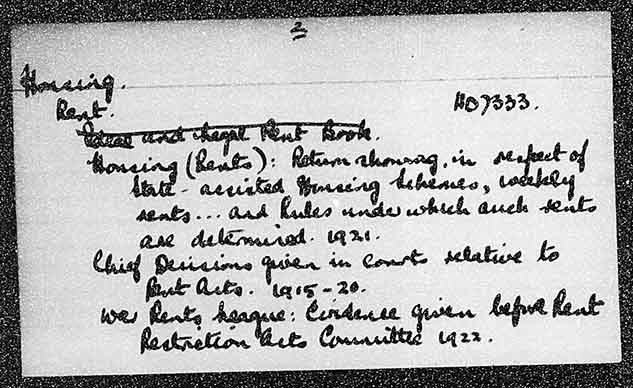 2
Housing.
Rent.
HD7333.
Ideal and Legal Rent Book.
Housing (Rents): Return showing, in respect of
State-assisted Housing Schemes, weekly
rents... and Rules under which such rents
are determined. 1921.
Chief Decisions given in courts relative to
Rent Acts. 1915-20.
War Rents League: Evidence given before Rent
Restriction Acts Committee 1922.